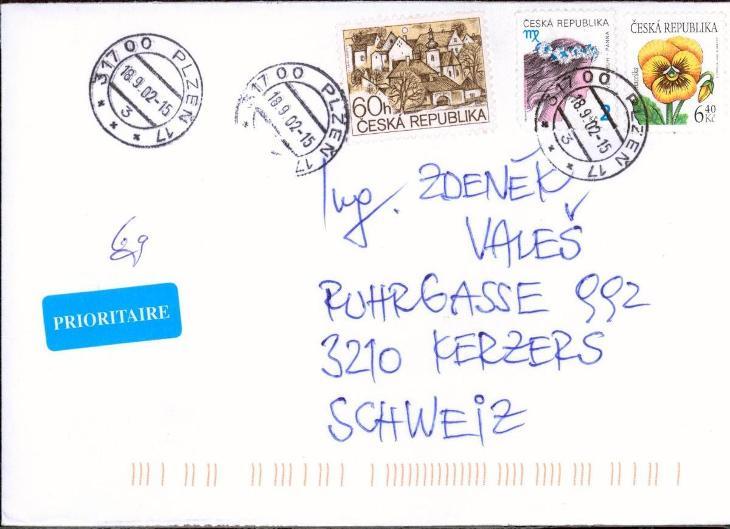 31700 PLZEŇ 17
18.9.02-15
3
31700 PLZEŇ 17
18.9.02-15
60h
ČESKÁ REPUBLIKA
ČESKÁ REPUBLIKA
PANNA
2
ČESKÁ REPUBLIKA
6,40
Kč
31700 PLZEŇ 17
18.9.02-15
3
Ing. ZDENĚK
VALEŠ
RUHRGASSE 992
3210 KERZERS
SCHWEIZ
PRIORITAIRE